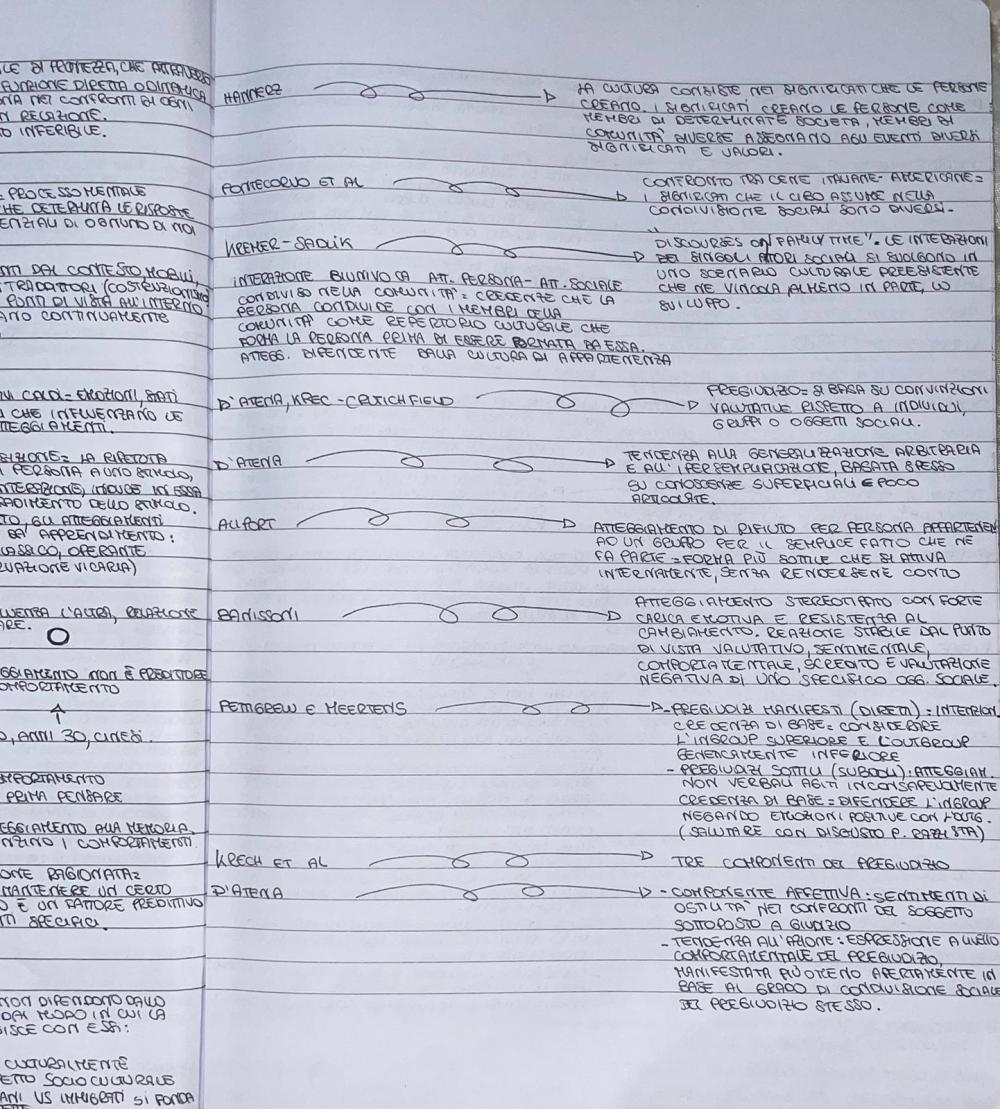 LE DI PRONTEZZA, CHE ATTRAVERSO
FUNZIONE DIRETTA O DINAMICA
ONA NEI CONFRONTI DI OGNI
IN RELAZIONE.
TO INFERIBILE.
PROCESSO MENTALE
CHE DETERMINA LE RISPOSTE
ENZIALI DI OGNUNO DI NOI
NTI DAL CONTESTO, MOBILI,
TRADDITTORI (COSTRUZIONISMO
PUNTI DI VISTA ALL'INTERNO
ANO CONTINUAMENTE
UI CALDI = EMOZIONI, STATI
A CHE INFLUENZANO LE
TTEGGIAMENTI.
SIZIONE = LA RIPETUTA
PERSONA A UNO STIMOLO,
NTERAZIONE, INDUCE IN ESSA
RADIMENTO DELLO STIMOLO.
TO, GLI ATTEGGIAMENTI
DA APPRENDIMENTO:
LASSICO, OPERANTE
RVAZIONE VICARIA)
LUENZA L'ALTRA, RELAZIONE
ARE.
GGIAMENTO NON È PREDITTORE
OMPORTAMENTO
O, ANNI 30, CINESI.
MPORTAMENTO
PRIMA PENSARE
EGGIAMENTO ALLA MEMORIA,
ENZINO I COMPORTAMENTI.
ONE RAGIONATA=
MANTENERE UN CERTO
O È UN FATTORE PREDITTIVO
TI SPECIFICI.
NON DIPENDONO DALLO
DAL MODO IN CUI LA
ISCE CON ESSI:
CULTURALMENTE
ETTO SOCIO CULTURALE
ANI VS IMMIGRATI SI FONDA
HANNERZ
LA CULTURA CONSISTE NEI SIGNIFICATI CHE LE PERSONE
CREANO. I SIGNIFICATI CREANO LE PERSONE COME
MEMBRI DI DETERMINATE SOCIETÀ, MEMBRI DI
COMUNITÀ DIVERSE ASSEGNANO AGLI EVENTI DIVERSI
SIGNIFICATI E VALORI.
PONTECORVO ET AL
CONFRONTO TRA CENE ITALIANE - AMERICANE =
I SIGNIFICATI CHE IL CIBO ASSUME NELLA
CONDIVISIONE SOCIALI SONO DIVERSI.
KREMER-SADLIK
"DISCOURSES ON FAMILY TIME". LE INTERAZIONI
DEI SINGOLI ATTORI SOCIALI SI SVOLGONO IN
UNO SCENARIO CULTURALE PREESISTENTE
CHE NE VINCOLA ALMENO IN PARTE, LO
SVILUPPO.
INTERAZIONE BIUNIVOCA ATT. PERSONA - ATT. SOCIALE
CONDIVISO NELLA COMUNITÀ = CREDENZE CHE LA
PERSONA CONDIVIDE CON I MEMBRI DELLA
COMUNITÀ COME REPERTORIO CULTURALE CHE
FORMA LA PERSONA PRIMA DI ESSERE FORMATA DA ESSA.
ATTEGG. DIPENDENTE DALLA CULTURA DI APPARTENENZA
D'ATENA, KREC-CRUTCHFIELD
PREGIUDIZIO = SI BASA SU CONVINZIONI
VALUTATIVE RISPETTO A INDIVIDUI,
GRUPPI O OGGETTI SOCIALI.
D'ATENA
TENDENZA ALLA GENERALIZZAZIONE ARBITRARIA
E ALL'IPERSEMPLIFICAZIONE, BASATA SPESSO
SU CONOSCENZE SUPERFICIALI E POCO
ARTICOLATE.
ALLPORT
ATTEGGIAMENTO DI RIFIUTO PER PERSONA APPARTENEN
AD UN GRUPPO PER IL SEMPLICE FATTO CHE NE
FA PARTE = FORMA PIÙ SOTTILE CHE SI ATTIVA
INTERNAMENTE, SENZA RENDERSENE CONTO
BANISSONI
ATTEGGIAMENTO STEREOTIPATO CON FORTE
CARICA EMOTIVA E RESISTENZA AL
CAMBIAMENTO. REAZIONE STABILE DAL PUNTO
DI VISTA VALUTATIVO, SENTIMENTALE,
COMPORTAMENTALE, SCREDITO E VALUTAZIONE
NEGATIVA DI UNO SPECIFICO OGG. SOCIALE.
PETTIGREW E MEERTENS
- PREGIUDIZI MANIFESTI (DIRETTI) = INTENZION
CREDENZA DI BASE = CONSIDERARE
L'INGROUP SUPERIORE E L'OUTGROUP
GENETICAMENTE INFERIORE
- PREGIUDIZI SOTTILI (SUBDOLI): ATTEGGIAM.
NON VERBALI AGITI INCONSAPEVOLMENTE
CREDENZA DI BASE = DIFENDERE L'INGROUP
NEGANDO EMOZIONI POSITIVE CON L'OUTG.
(SALUTARE CON DISGUSTO P. RAZZISTA)
KRECH ET AL
TRE COMPONENTI DEL PREGIUDIZIO
D'ATENA
- COMPONENTE AFFETTIVA: SENTIMENTI DI
OSTILITÀ NEI CONFRONTI DEL SOGGETTO
SOTTOPOSTO A GIUDIZIO
- TENDENZA ALL'AZIONE: ESPRESSIONE A LIVELLO
COMPORTAMENTALE DEL PREGIUDIZIO,
MANIFESTATA PIÙ O MENO APERTAMENTE IN
BASE AL GRADO DI CONDIVISIONE SOCIALE
DEL PREGIUDIZIO STESSO.